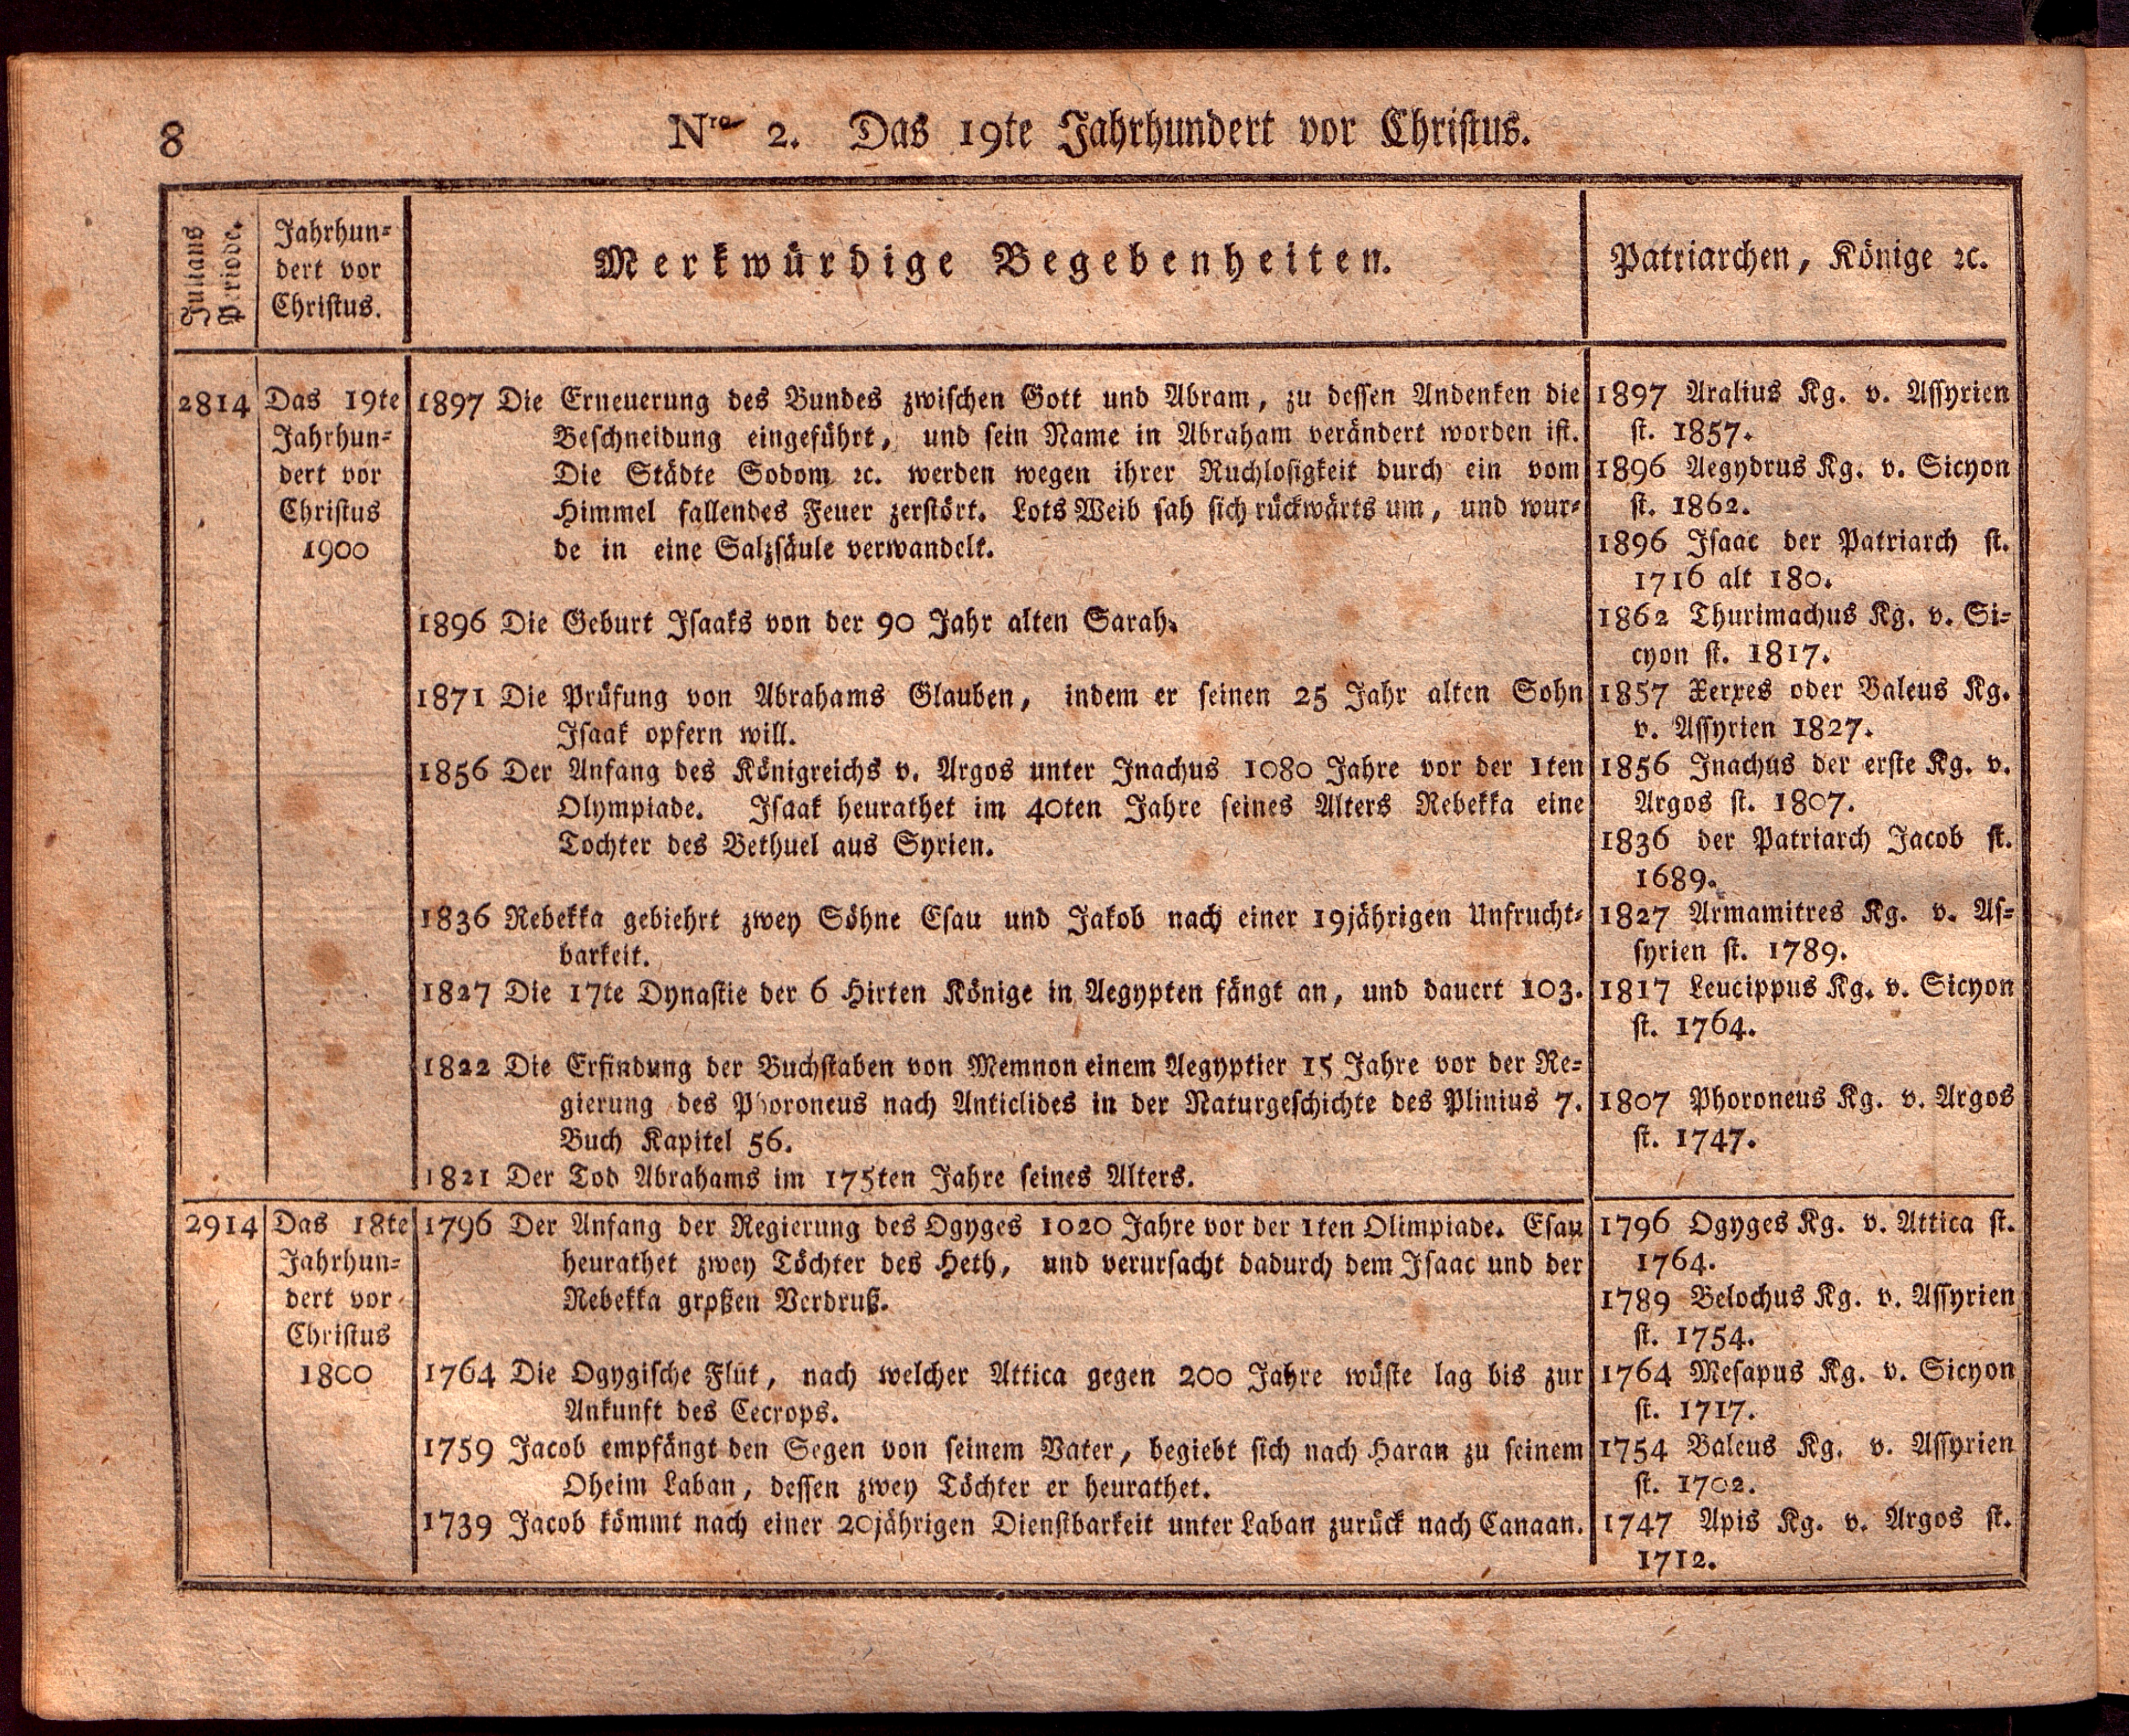 8
Nro 2. Das 19te Jahrhundert vor Christus.
Julians
Periode.
Jahrhun-
dert vor
Christus.
Merkwürdige Begebenheiten.
Patriarchen, Könige ꝛc.
2814
Das 19te
Jahrhun-
dert vor
Christus
1900
1897 Die Erneuerung des Bundes zwischen Gott und Abram, zu dessen Andenken die
Beschneidung eingeführt, und sein Name in Abraham verändert worden ist.
Die Städte Sodom ꝛc. werden wegen ihrer Ruchlosigkeit durch ein vom
Himmel fallendes Feuer zerstört. Lots Weib sah sich rückwärts um, und wur-
de in eine Salzsäule verwandelt.
1896 Die Geburt Isaaks von der 90 Jahr alten Sarah.
1871 Die Prüfung von Abrahams Glauben, indem er seinen 25 Jahr alten Sohn
Isaak opfern will.
1856 Der Anfang des Königreichs v. Argos unter Inachus 1080 Jahre vor der 1ten
Olympiade. Isaak heurathet im 40ten Jahre seines Alters Rebekka eine
Tochter des Bethuel aus Syrien.
1836 Rebekka gebiehrt zwey Söhne Esau und Jakob nach einer 19jährigen Unfrucht-
barkeit.
1827 Die 17te Dynastie der 6 Hirten Könige in Aegypten fängt an, und dauert 103.
1822 Die Erfindung der Buchstaben von Memnon einem Aegyptier 15 Jahre vor der Re-
gierung des Phoroneus nach Anticlides in der Naturgeschichte des Plinius 7.
Buch Kapitel 56.
1821 Der Tod Abrahams im 175ten Jahre seines Alters.
1897 Aralius Kg. v. Assyrien
st. 1857.
1896 Aegydrus Kg. v. Sicyon
st. 1862.
1896 Isaac der Patriarch st.
1716 alt 180.
1862 Thurimachus Kg. v. Si-
cyon st. 1817.
1857 Xerxes oder Baleus Kg.
v. Assyrien 1827.
1856 Inachus der erste Kg. v.
Argos st. 1807.
1836 der Patriarch Jacob st.
1689.
1827 Armamitres Kg. v. As-
syrien st. 1789.
1817 Leucippus Kg. v. Sicyon
st. 1764.
1807 Phoroneus Kg. v. Argos
st. 1747.
2914
Das 18te
Jahrhun-
dert vor
Christus
1800
1796 Der Anfang der Regierung des Ogyges 1020 Jahre vor der 1ten Olimpiade. Esau
heurathet zwey Töchter des Heth, und verursacht dadurch dem Isaac und der
Rebekka großen Verdruß.
1764 Die Ogygische Flut, nach welcher Attica gegen 200 Jahre wüste lag bis zur
Ankunft des Cecrops.
1759 Jacob empfängt den Segen von seinem Vater, begiebt sich nach Haran zu seinem
Oheim Laban, dessen zwey Töchter er heurathet.
1739 Jacob kömmt nach einer 20jährigen Dienstbarkeit unter Laban zurück nach Canaan.
1796 Ogyges Kg. v. Attica st.
1764.
1789 Belochus Kg. v. Assyrien
st. 1754.
1764 Mesapus Kg. v. Sicyon
st. 1717.
1754 Baleus Kg. v. Assyrien
st. 1702.
1747 Apis Kg. v. Argos st.
1712.